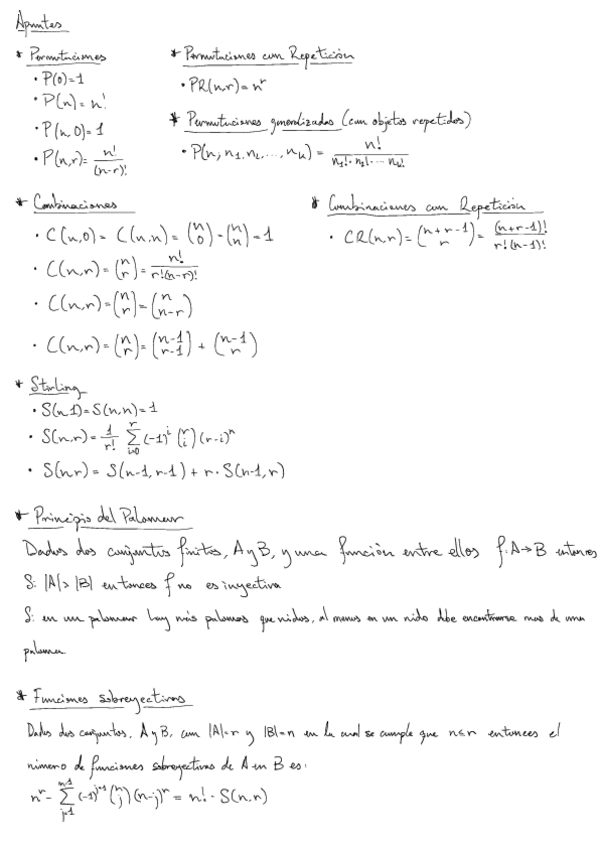 Apuntes
* Permutaciones
• P(0)=1
• P(n)= n!
• P(n,0)=1
• P(n,r)= n!/(n-r)!
* Permutaciones con Repetición
• PR(n,r)= n^r
* Permutaciones generalizadas (con objetos repetidos)
• P(n; n₁, n₂, ..., n_k) = n!/(n₁!· n₂!· ... n_k!)
* Combinaciones
• C(n,0)= C(n,n)= (n 0) = (n n) = 1
• C(n,r)= (n r) = n!/(r!(n-r)!)
• C(n,r)= (n r) = (n n-r)
• C(n,r)= (n r) = (n-1 r-1) + (n-1 r)
* Combinaciones con Repetición
• CR(n,r)= (n+r-1 r) = (n+r-1)!/(r!(n-1)!)
* Stirling
• S(n,1)=S(n,n)=1
• S(n,r)= 1/r! ∑_{i=0}^{r} (-1)^i (r i) (r-i)^n
• S(n,r)= S(n-1,r-1) + r·S(n-1,r)
* Principio del Palomar
Dados dos conjuntos finitos, A y B, y una función entre ellos f:A→B entonces
Si |A|>|B| entonces f no es inyectiva
Si en un palomar hay más palomas que nidos, al menos en un nido debe encontrarse mas de una
paloma
* Funciones sobreyectivas
Dados dos conjuntos, A y B, con |A|=r y |B|=n en la cual se cumple que n≤r entonces el
número de funciones sobreyectivas de A en B es:
n^r - ∑_{j=1}^{n-1} (-1)^{j+1} (n j) (n-j)^r = n!· S(r,n)